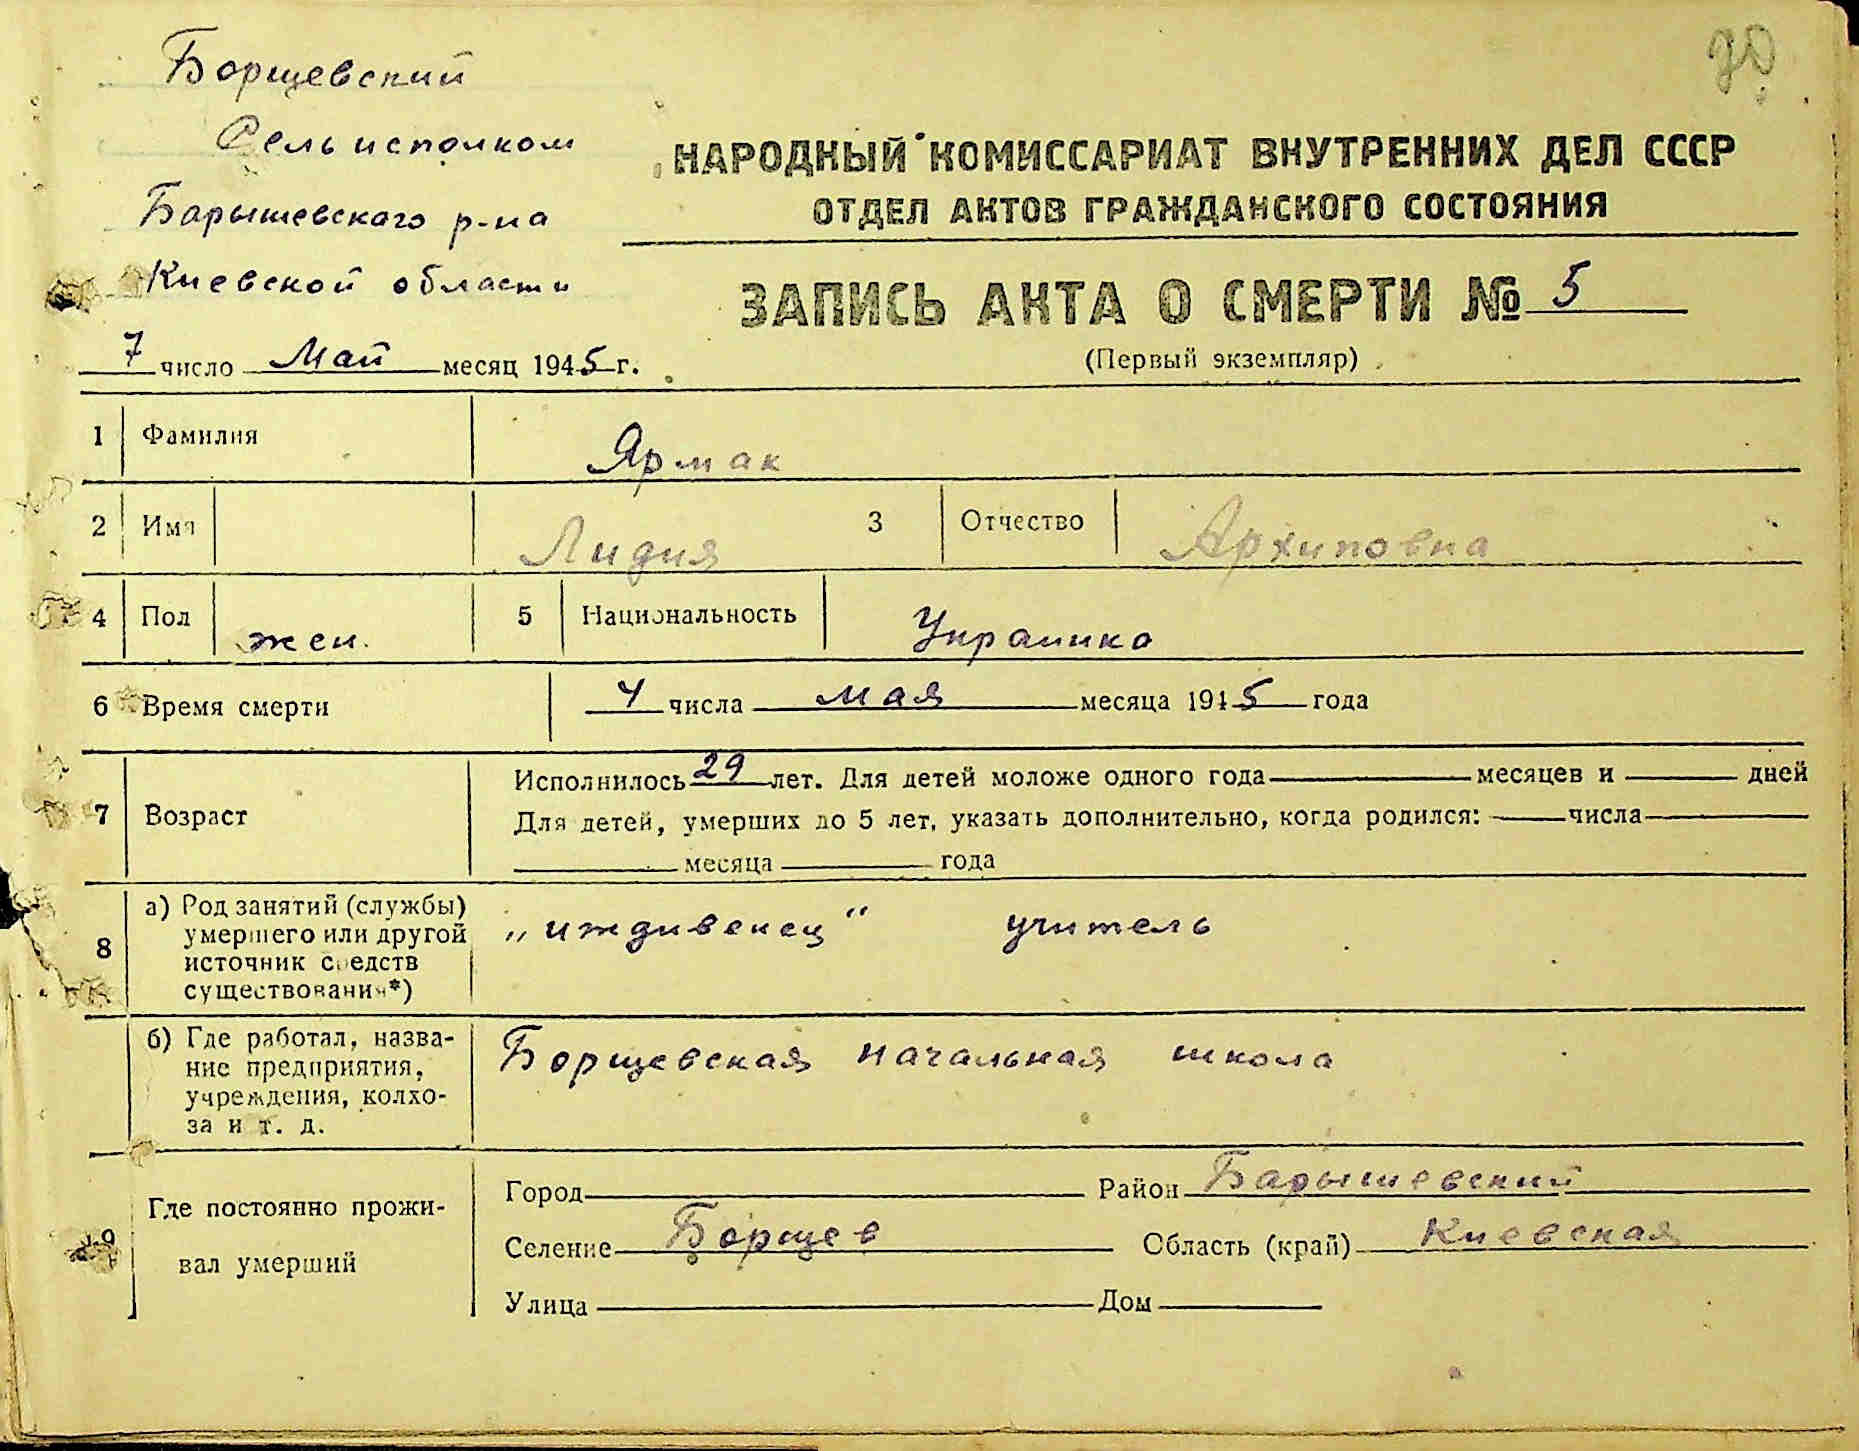 70
Борщевский
Сельисполком
Барышевского р-на
Киевской области
7 число Май месяц 1945 г.
НАРОДНЫЙ КОМИССАРИАТ ВНУТРЕННИХ ДЕЛ СССР
ОТДЕЛ АКТОВ ГРАЖДАНСКОГО СОСТОЯНИЯ
ЗАПИСЬ АКТА О СМЕРТИ № 5
(Первый экземпляр)
1 Фамилия Ярмак
2 Имя Лидия 3 Отчество Архиповна
4 Пол жен. 5 Национальность Украинка
6 Время смерти 4 числа мая месяца 1945 года
7 Возраст
Исполнилось 29 лет. Для детей моложе одного года месяцев и дней
Для детей, умерших до 5 лет, указать дополнительно, когда родился: числа
месяца года
8 а) Род занятий (службы)
умершего или другой
источник средств
существования*)
„иждивенец“ учитель
б) Где работал, назва-
ние предприятия,
учреждения, колхо-
за и т. д.
Борщевская начальная школа
9 Где постоянно прожи-
вал умерший
Город Район Барышевский
Селение Борщев Область (край) Киевская
Улица Дом